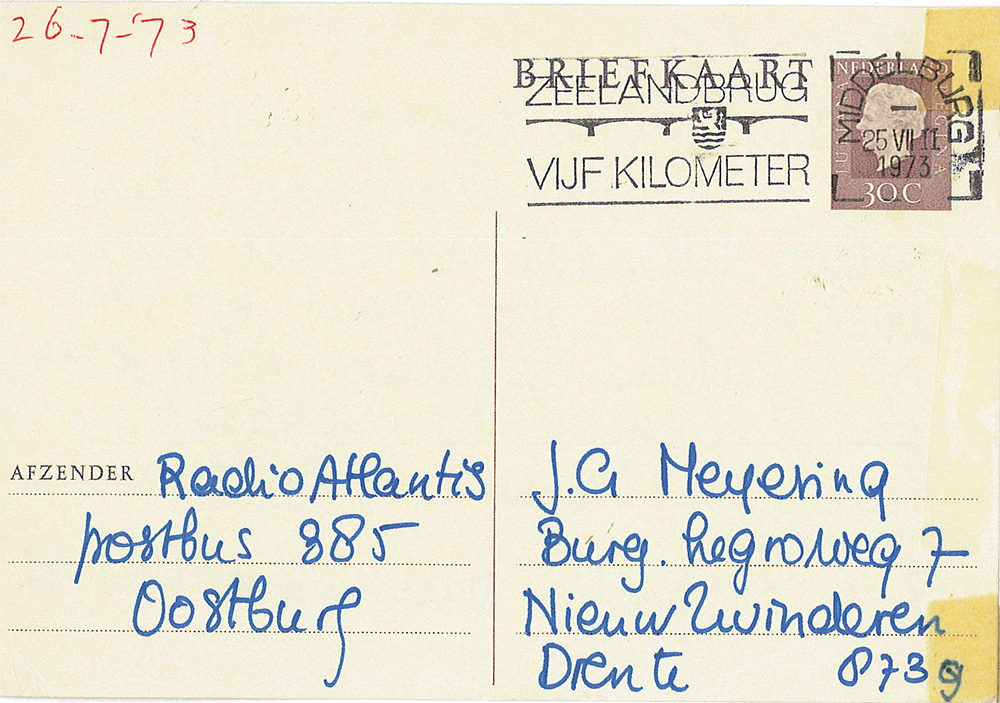 26-7-'73
BRIEFKAART
ZEELANDBRUG
VIJF KILOMETER
NEDERLAND
JULIANA REGINA
30 C
MIDDELBURG 1
25 VII 11
1973
AFZENDER Radio Atlantis
postbus 385
Oostburg
J.G Meyering
Burg. Legroweg 7
Nieuw Zwinderen
Drente 8739